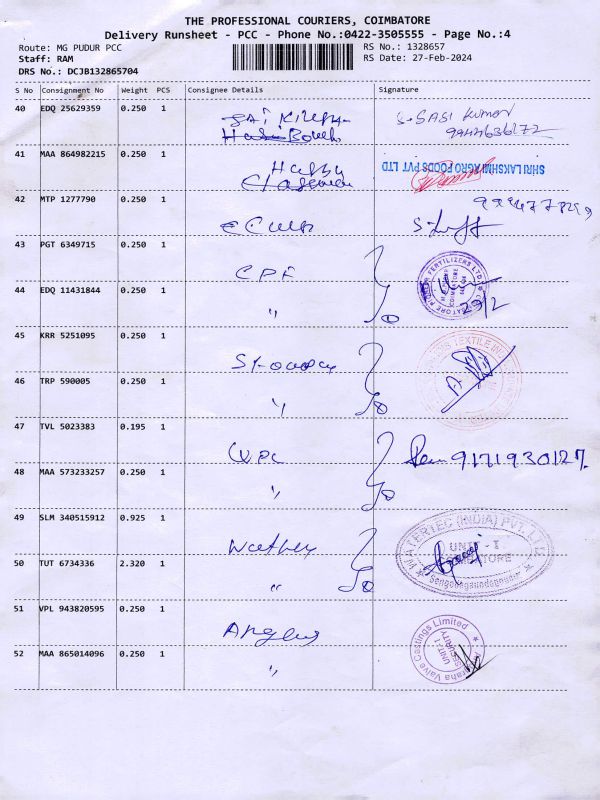 THE PROFESSIONAL COURIERS, COIMBATORE
Delivery Runsheet - PCC - Phone No.:0422-3505555 - Page No.:4
Route: MG PUDUR PCC RS No.: 1328657
Staff: RAM RS Date: 27-Feb-2024
DRS No.: DCJB132865704
S No Consignment No Weight PCS Consignee Details Signature
40 EDQ 25629359 0.250 1 SAI S-SASI Kumar
41 MAA 864982215 0.250 1 Happy SHRI LAKSHMI AGRO FOODS PVT LTD
42 MTP 1277790 0.250 1 Staff
43 PGT 6349715 0.250 1 CPF FERTILIZERS LTD. COIMBATORE
44 EDQ 11431844 0.250 1 " 29/2
45 KRR 5251095 0.250 1 TEXTILE
46 TRP 590005 0.250 1 "
47 TVL 5023383 0.195 1 9171930127.
48 MAA 573233257 0.250 1 "
49 SLM 340515912 0.925 1 WATERTEC (INDIA) PVT. LTD. UNIT - I COIMBATORE
50 TUT 6734336 2.320 1 "
51 VPL 943820595 0.250 1 Valve Castings Limited UNIT-I SECURITY
52 MAA 865014096 0.250 1 "